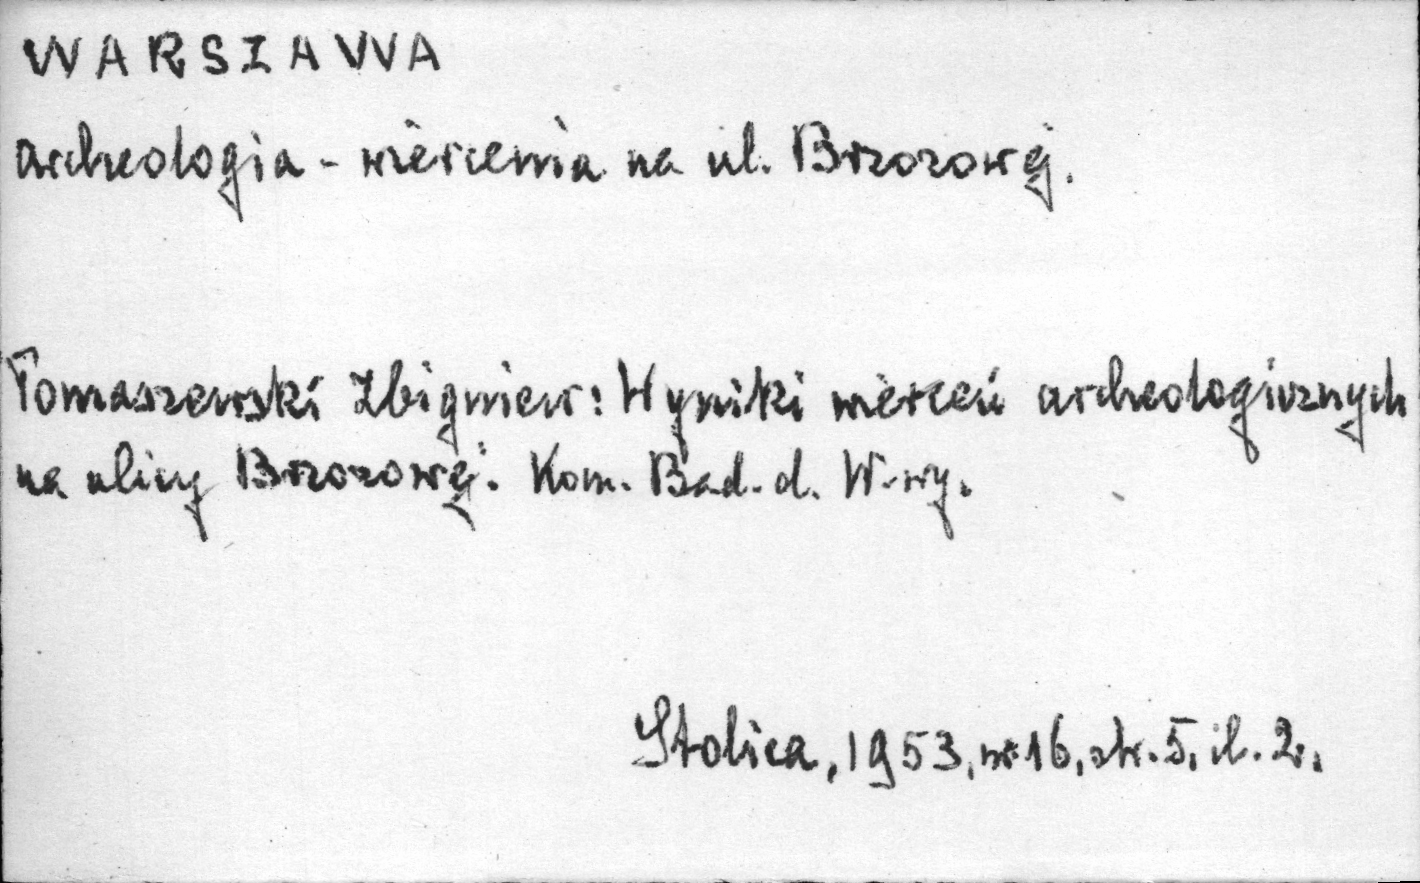 WARSZAWA
archeologia - wiercenia na ul. Brzozowej.
Tomaszewski Zbigniew: Wyniki wierceń archeologicznych
na ulicy Brzozowej. Kom. Bad. d. W-wy.
Stolica, 1953, nr 16, str. 5, il. 2.